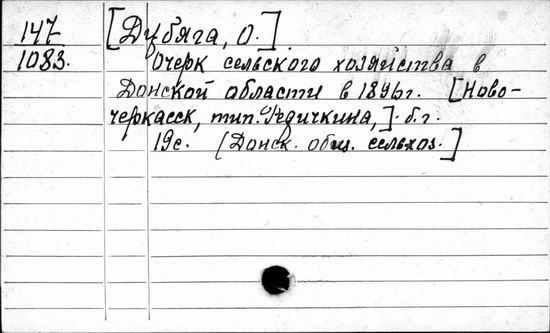 147
1083.
[Дубяга, О.]
Очерк сельского хозяйства в
Донской области в 1896г. [Ново-
черкасск, тип. Редичкина,] б.г.
19с. [Донск. общ. сельхоз.]